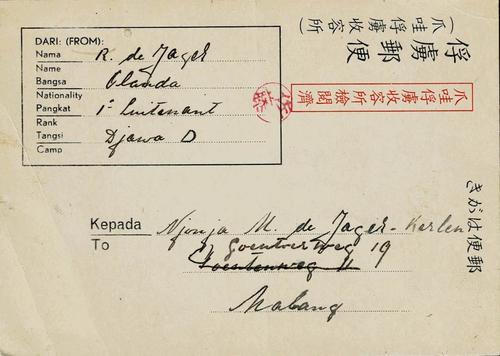 DARI: (FROM):
Nama R. de Jager
Name
Bangsa Olanda
Nationality
Pangkat 1e Luitenant
Rank
Tangsi Djawa D
Camp
(爪哇俘虜收容所)
俘虜郵便
爪哇俘虜收容所檢閱濟
きがは便郵
Kepada Njonja M. de Jager-Kerlen
To
19
Malang